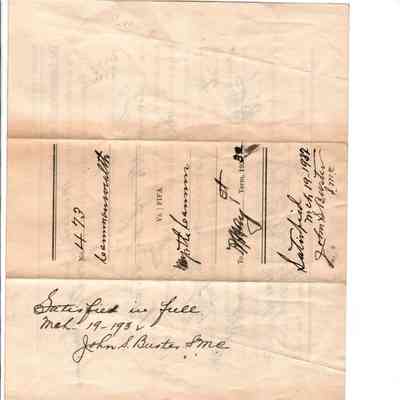 No. 473
Commonwealth
Vs. } FIFA
To May Term, 1932
Satisfied
Mch 19-1932
John S. Buster
S.M.C.
Satisfied in full
Mch. 19-1932
John S. Buster S.M.C.